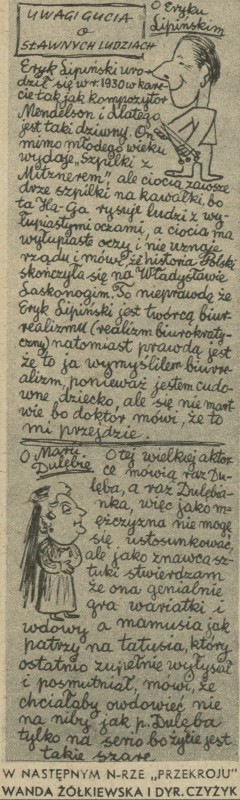 UWAGI GUCIA
O
SŁAWNYCH LUDZIACH
O Eryku
Lipińskim
Eryk Lipiński uro-
dził się w r. 1930 w kare-
cie tak jak kompozytor
Mendelson i dlatego
jest taki dziwny. On
mimo młodego wieku
wydaje „Szpilki z
Mitznerem", ale ciocia zawsze
drze szpilki na kawałki, bo
ta Ha-Ga rysuje ludzi z wy-
łupiastymi oczami, a ciocia ma
wyłupiaste oczy i nie uznaje
rządu i mówi, że historia Polski
skończyła się na Władysławie
Laskonogim. To nieprawda że
Eryk Lipiński jest twórcą biur-
realizmu (realizm biurokraty-
czny) natomiast prawdą jest
że to ja wymyśliłem biurre-
alizm, ponieważ jestem cudo-
wne dziecko, ale się nie mart-
wię bo doktór mówi, że to
mi przejdzie.
O Marii
Dulębie
O tej wielkiej aktor-
ce mówią raz Du-
lęba, a raz Dulębia-
nka, więc jako m-
ężczyzna nie mogę
się ustosunkować,
ale jako znawca sz-
tuki stwierdzam
że ona genialnie
gra wariatki i
wdowy a mamusia jak
patrzy na tatusia, który
ostatnio zupełnie wyłysiał
i posmutniał, mówi, że
chciałaby owdowieć nie
na niby jak p. Dulęba
tylko na serio bo życie jest
takie szare.
W NASTĘPNYM N-RZE „PRZEKROJU"
WANDA ŻÓŁKIEWSKA I DYR. CZYŻYK